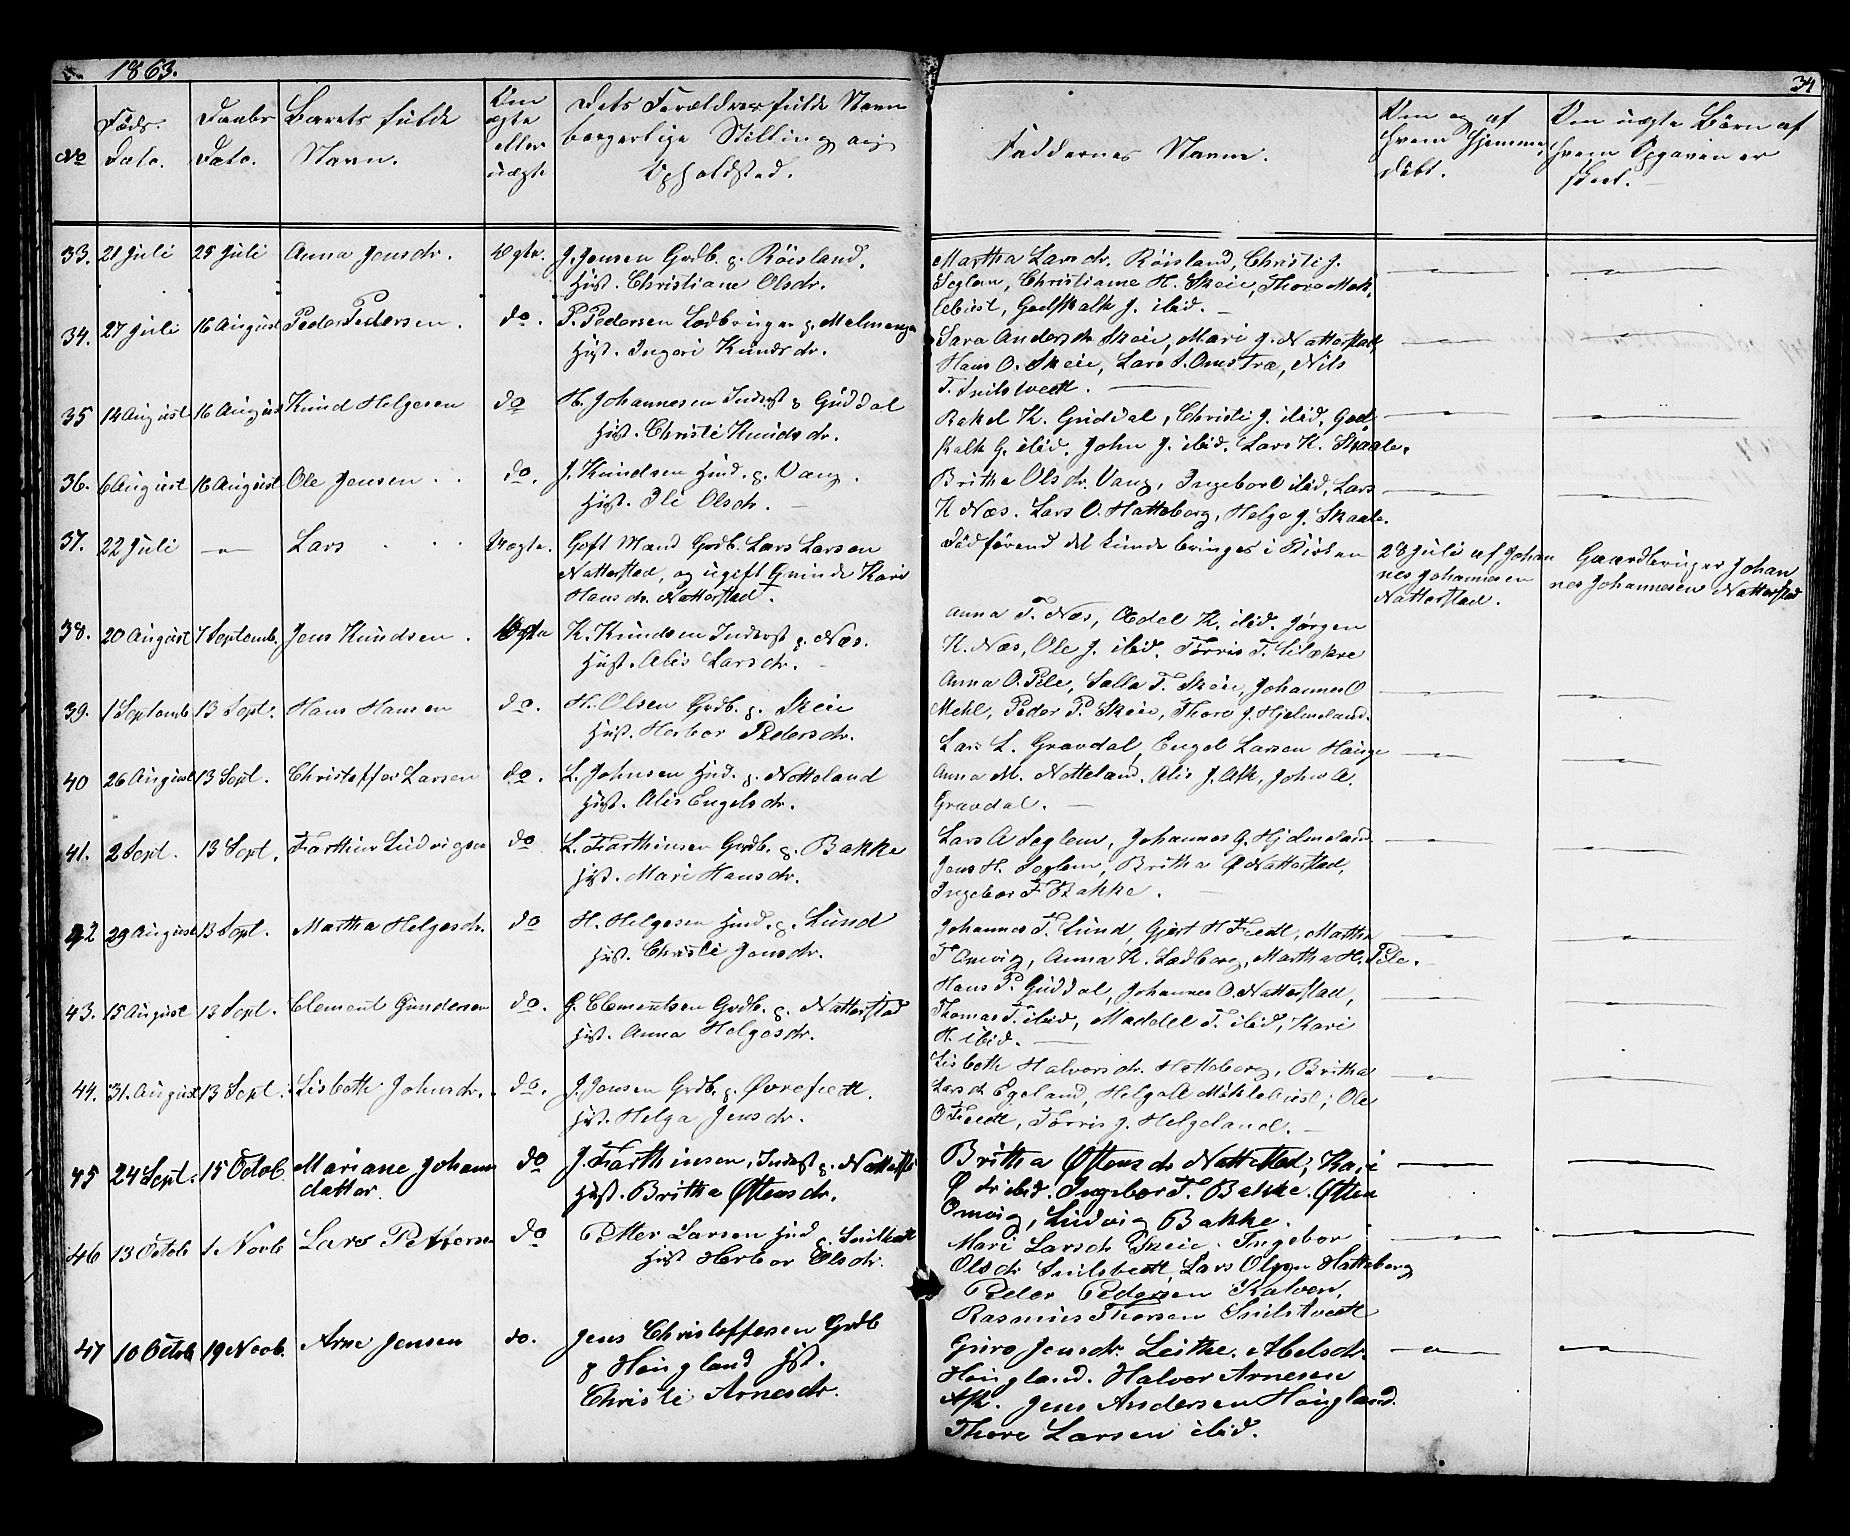 1863.
34
No
Føds.
Dato.
Daabs
Dato.
Barnets fulde
Navn.
Om
ægte
eller
uægte
Dets Forældres fulde Navn
borgerlige Stilling og
Opholdsted.
Faddernes Navne.
Om og af
hvem hjemme
døbt.
Om uægte Børn af
hvem Opgaven er
skeet.
33. 21 Juli 25 Juli Anna Jensdr. Ægte. J. Jensen Grdb. p. Røisland.
Hust. Christiane Olsdr.
Martha Larsdr. Røisland, Christi J.
Seglem, Christiane H. Skeie, Thore Mek
lebust, Godskalk J. ibid.
34. 27 Juli 16 August Peder Pedersen. do. P. Pedersen Lodbruger p. Melmanger
Hust. Ingeri Knudsdr.
Sara Andersdr Skeie, Mari J. Natterstad,
Hans O. Skeie, Lars S. Omstra, Nils
T. Snilstvedt.
35 14 August 16 August Knud Helgesen do H. Johannesen Inderst p Guddal
Hust. Christi Knudsdr.
Rakel K. Guddal, Christi J. ibid, God
kalk G. ibid. John J. ibid. Lars K. Skaale.
36. 6 August 16 August Ole Jensen do. J. Knudsen Hmd. p. Vang.
Hust. Eli Olsdr.
Britha Olsdr. Vang, Ingebor O ibid, Lars
K Næs. Lars O. Hatteberg, Helge J. Skaale.
37. 22 Juli Lars Uægte. Gift Mand Grdb. Lars Larsen
Natterstad, og ugift Qvinde Kari
Hansdr. Natterstad.
Død førend det kunde bringes i Kirken
28 Juli af Johan
nes Johannesen
Natterstad.
Gaardbruger Johan
nes Johannesen Natterstad
38. 20 August 7 Septemb. Jens Knudsen. Ægte K. Knudsen Inderst p Næs.
Hust. Alis Larsdr.
Anna T. Næs, Ædel K. ibid. Jørgen
K. Næs, Ole J. ibid. Tørris T. Lilækre
39. 1 Septemb 13 Sept. Hans Hansen do. H. Olsen Grdb. p. Skeie
Hust. Herbor Pedersdr.
Anna O. Pile, Salla T. Skeie, Johannes O
Mehl, Peder P. Skeie, Thore J. Hjelmeland.
40 26 August 13 Sept. Christoffer Larsen do. L. Johnsen Hmd. p. Notteland
Hust. Alis Engelsdr.
Lars L. Gravdal, Engel Larsen Hauge
Anna M. Notteland. Alis J. Ask, John A.
Gravdal.
41. 2 Sept. 13 Sept. Farthin Ludvigsen do L. Farthinsen Grdb. p. Bakke
Hust. Mari Hansdr.
Lars A Seglem, Johannes G. Hjelmeland
Jens H. Seglem, Britha Ø Natterstad,
Ingebor F Bakke.
42 29 August 13 Sept. Martha Helgesdr. do H. Helgesen Hmd. p. Lund
Hust. Christi Jensdr.
Johannes T. Lund, Gjert H Tvedt, Martha
T Omvig, Anna K. Lædberg, Martha H. Pile.
43. 15 August 13 Sept. Clement Gundersen do. G. Clementsen Grdb. p. Natterstad
Hust. Anna Helgesdr.
Hans P. Guddal, Johannes O. Natterstad,
Thomas T. ibid, Maddel T. ibid, Kari
H. ibid.
44. 31. August 13 Sept. Lisbeth Johnsdr. do. J. Jensen Grdb. p. Øvretvedt.
Hust. Helga Jensdr.
Lisbeth Halvorsdr. Hatteberg, Britha
Larsdr Egeland, Helge A Møklebust, Ole
O Tvedt, Tørris J. Helgeland.
45 24 Sept. 15 Octob. Mariane Johans
datter. do J. Farthinsen, Inderst p. Natterst
Hust. Britha Østensdr.
Britha Østensdr Natterstad, Kari
Ø dr ibid. Ingebor F. Bakke. Østen
Omvig, Ludvig Bakke.
46 13 Octob 1 Novb Lars Pettersen do Petter Larsen Hmd p. Snilstvedt
Hust Herbor Olsdr.
Mari Larsdr Skeie. Ingebor
Olsdr Snilstvedt, Lars Olsen Hatteberg
Peder Pedersen Kalven,
Rasmus Thorsen Snilstvedt
47 10 Octob 19 Novb. Arne Jensen do. Jens Christoffersen Grdb
p Høugland Hst.
Christi Arnesdr.
Guro Jensdr Leithe. Abelsdr.
Høugland. Halvor Arnesen
Ask. Jens Andersen Høugland.
Thore Larsen ibid.